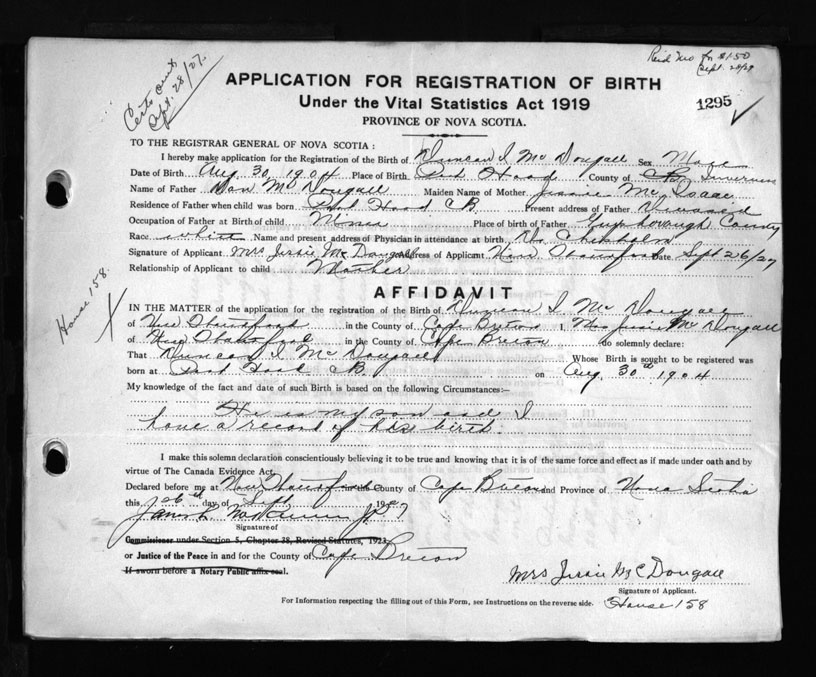 Certs sent
Sept. 28/27.
Sept. 28/27
APPLICATION FOR REGISTRATION OF BIRTH
Under the Vital Statistics Act 1919
1295
PROVINCE OF NOVA SCOTIA.
TO THE REGISTRAR GENERAL OF NOVA SCOTIA:
I hereby make application for the Registration of the Birth of Duncan J McDougall Sex Male
Date of Birth Aug 30, 1904 Place of Birth Port Hood County of Inverness
Name of Father Dan McDougall Maiden Name of Mother Jessie McIsaac
Residence of Father when child was born Port Hood CB Present address of Father Deceased
Occupation of Father at Birth of child Miner Place of birth of Father Guysborough County
Race white Name and present address of Physician in attendance at birth Chisholm
Signature of Applicant Mrs Jessie McDougall Address of Applicant New Waterford Date Sept 26/27
Relationship of Applicant to child Mother
House 158.
AFFIDAVIT
IN THE MATTER of the application for the registration of the Birth of Duncan J McDougall
of New Waterford in the County of Cape Breton I, Mrs Jessie McDougall
of New Waterford in the County of Cape Breton do solemnly declare:
That Duncan J McDougall Whose Birth is sought to be registered was
born at Port Hood CB. on Aug. 30th 1904
My knowledge of the fact and date of such Birth is based on the following Circumstances:—
He is my son and I
have a record of his birth.
I make this solemn declaration conscientiously believing it to be true and knowing that it is of the same force and effect as if made under oath and by
virtue of The Canada Evidence Act.
Declared before me at New Waterford in the County of Cape Breton and Province of Nova Scotia
this 26th day of Sept 192
Signature of
Commissioner under Section 5, Chapter 38, Revised Statutes, 1923
or Justice of the Peace in and for the County of Cape Breton
If sworn before a Notary Public affix seal.
Mrs Jessie McDougall
Signature of Applicant.
For Information respecting the filling out of this Form, see Instructions on the reverse side. House 158